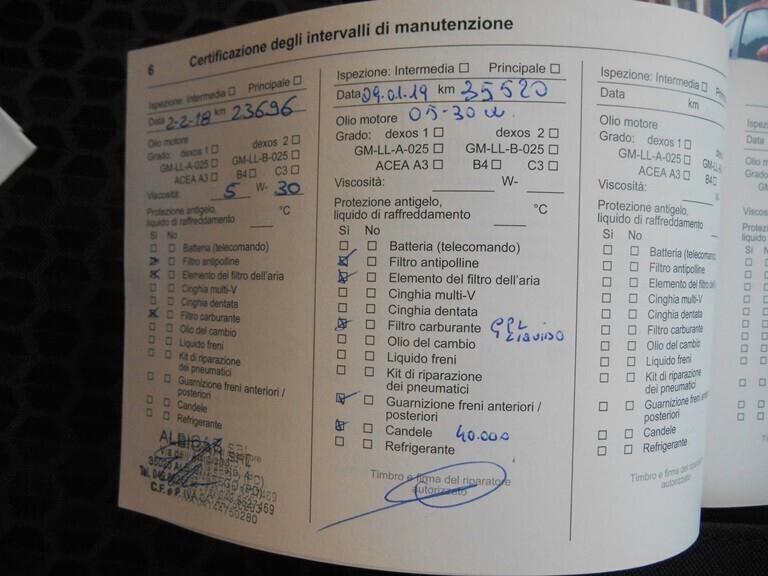 6 Certificazione degli intervalli di manutenzione
Ispezione: Intermedia □ Principale □
Data 2-2-18 km 23696
Olio motore
Grado: dexos 1 □ dexos 2 □
GM-LL-A-025 □ GM-LL-B-025 □
ACEA A3 □ B4 □ C3 □
Viscosità: 5 W- 30
Protezione antigelo,
liquido di raffreddamento °C
Sì No
Batteria (telecomando)
Filtro antipolline
Elemento del filtro dell'aria
Cinghia multi-V
Cinghia dentata
Filtro carburante
Olio del cambio
Liquido freni
Kit di riparazione
dei pneumatici
Guarnizione freni anteriori /
posteriori
Candele
Refrigerante
ALBICAR SRL
Ispezione: Intermedia □ Principale □
Data 09.01.19 km 35520
Olio motore 05-30 W.
Grado: dexos 1 □ dexos 2 □
GM-LL-A-025 □ GM-LL-B-025 □
ACEA A3 □ B4 □ C3 □
Viscosità: W-
Protezione antigelo,
liquido di raffreddamento °C
Sì No
Batteria (telecomando)
Filtro antipolline
Elemento del filtro dell'aria
Cinghia multi-V
Cinghia dentata
Filtro carburante GPL
LIQUIDO
Olio del cambio
Liquido freni
Kit di riparazione
dei pneumatici
Guarnizione freni anteriori /
posteriori
Candele 40.000
Refrigerante
Timbro e firma del riparatore
autorizzato
Ispezione: Intermedia □
Data km
Olio motore
Grado: dexos 1 □
GM-LL-A-025 □
ACEA A3 □ B4 □
Viscosità:
Protezione antigelo,
liquido di raffreddamento
Sì No
Batteria (telecomando)
Filtro antipolline
Elemento del filtro dell
Cinghia multi-V
Cinghia dentata
Filtro carburante
Olio del cambio
Liquido freni
Kit di riparazione
dei pneumatici
Guarnizione freni anteriori
posteriori
Candele
Refrigerante
Timbro e firma del
autorizzato